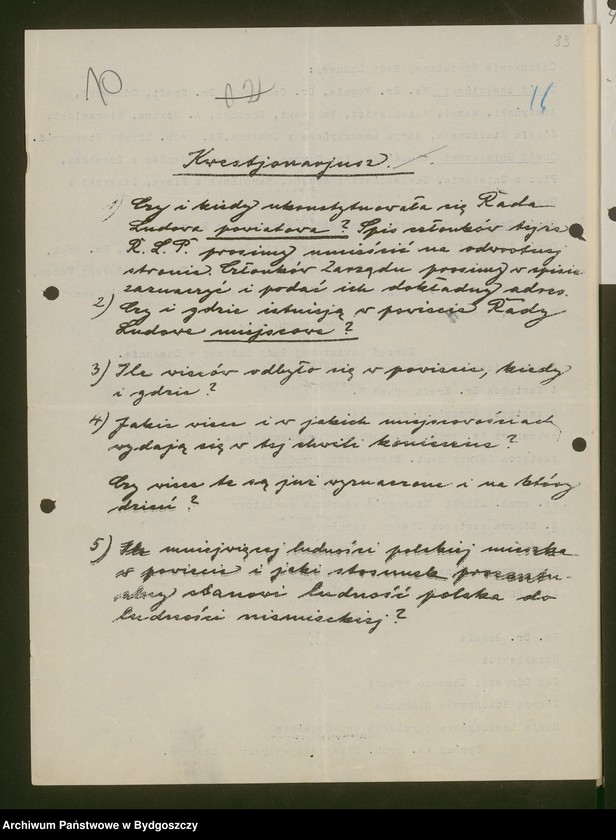 33
10
70
16
Kwestjonarjusz.
1) Czy i kiedy ukonstytuowała się Rada
Ludowa powiatowa? Spis członków tejże
R. L. P. prosimy umieścić na odwrotnej
stronie. Członków Zarządu prosimy w spisie
zaznaczyć i podać ich dokładny adres.
2) Czy i gdzie istnieją w powiecie Rady
Ludowe miejscowe?
3) Ile wieców odbyło się w powiecie, kiedy
i gdzie?
4) Jakie wiece i w jakich miejscowościach
wydają się w tej chwili konieczne?
Czy wiece te są już wyznaczone i na który
dzień?
5) Ile mniejwięcej ludności polskiej mieszka
w powiecie i jaki stosunek procentu-
alny stanowi ludność polska do
ludności niemieckiej?
Archiwum Państwowe w Bydgoszczy